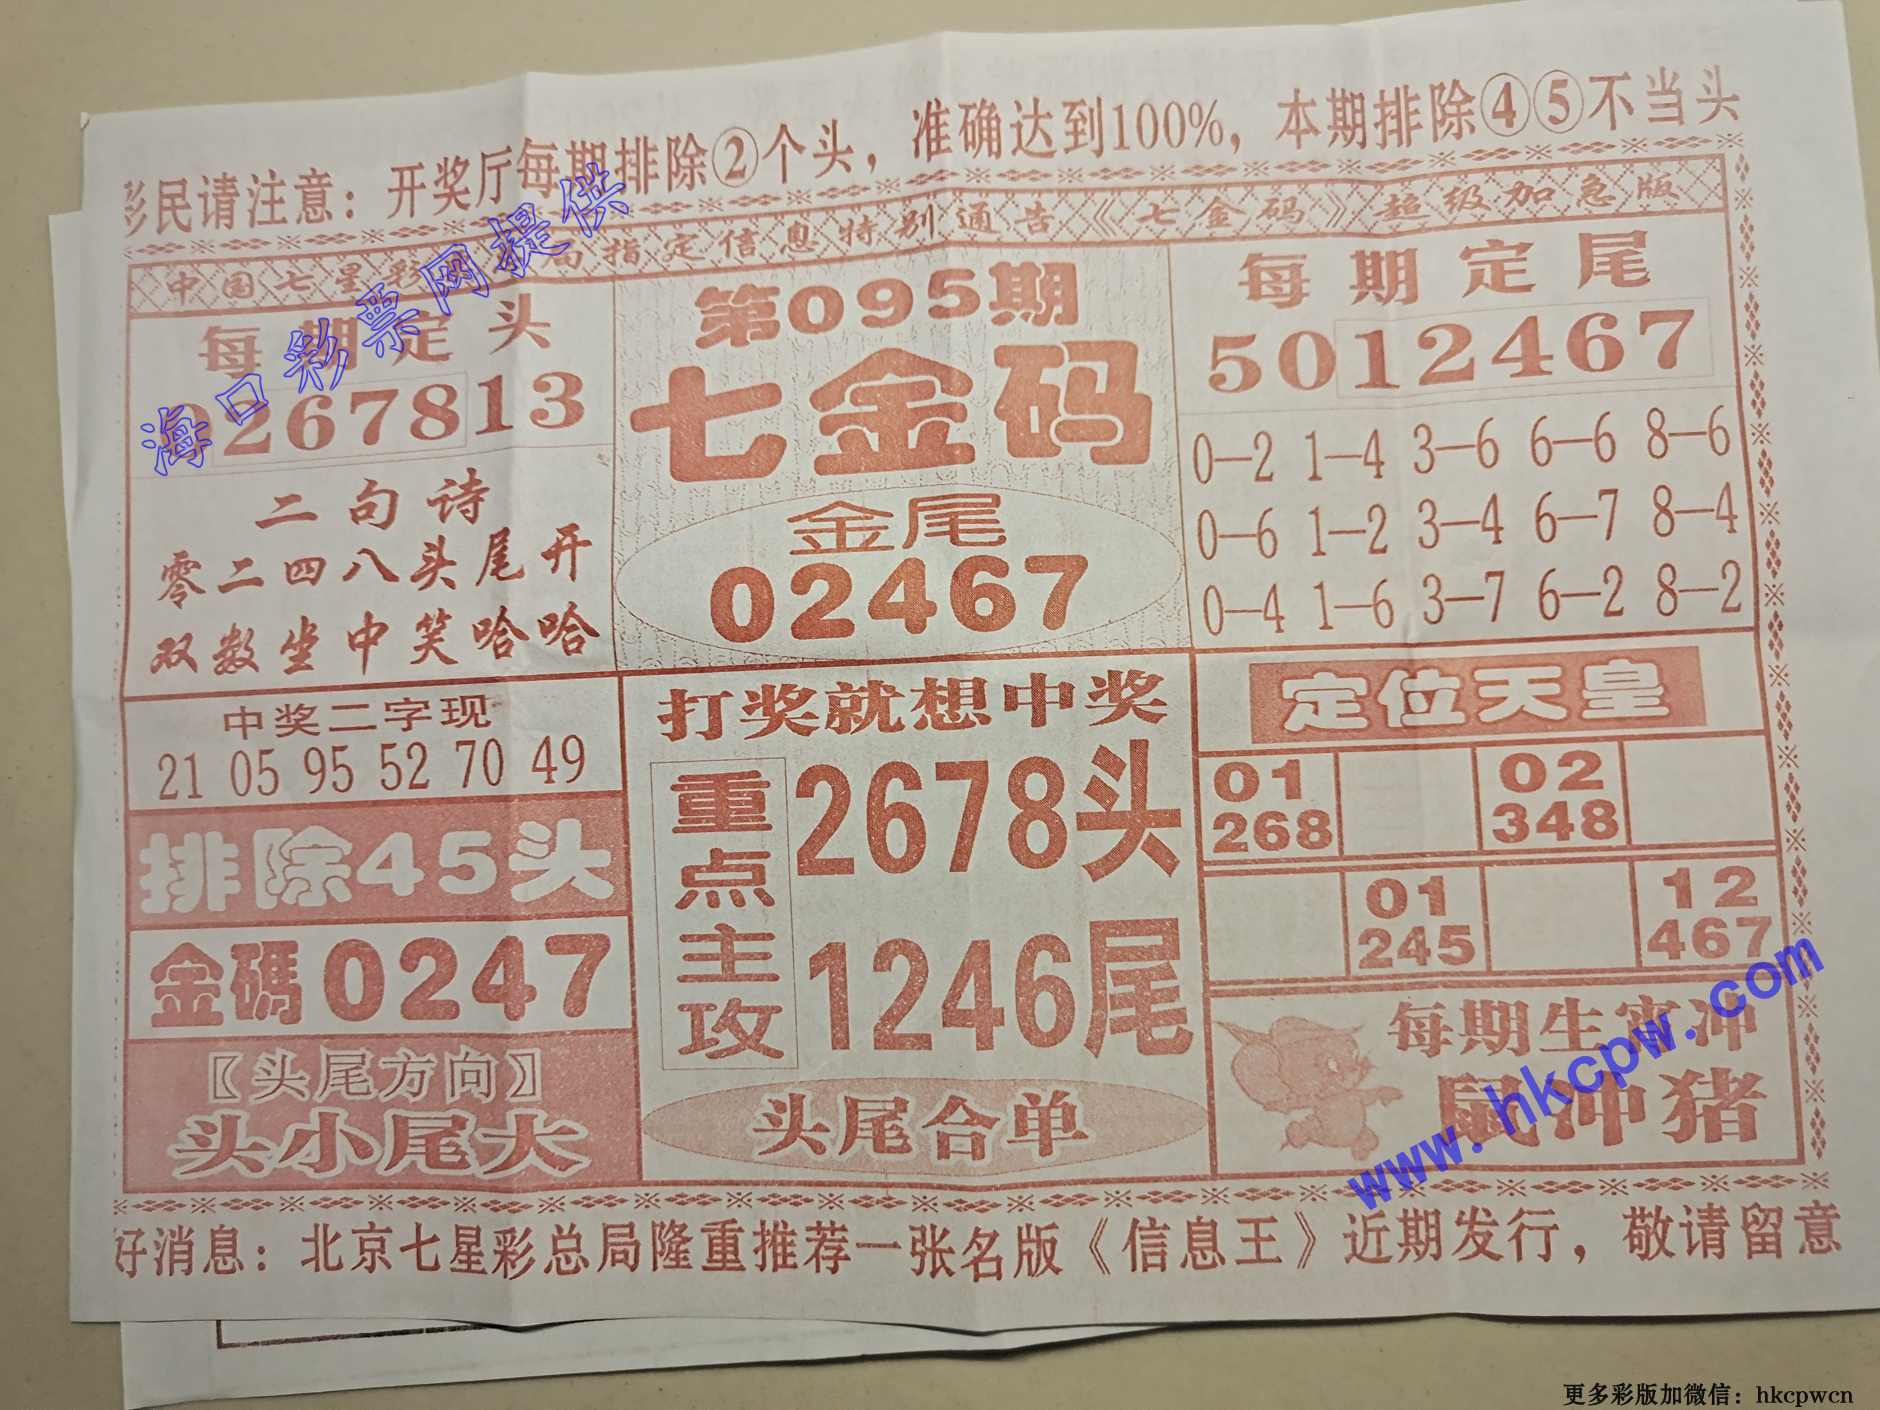 彩民请注意：开奖厅每期排除②个头，准确达到100%，本期排除④⑤不当头
中国七星彩局指定信息特别通告《七金码》超级加急版
每期定头
026781 3
二句诗
零二四八头尾开
双数坐中笑哈哈
第095期
七金码
金尾
02467
每期定尾
5012467
0—2 1—4 3—6 6—6 8—6
0—6 1—2 3—4 6—7 8—4
0—4 1—6 3—7 6—2 8—2
中奖二字现
21 05 95 52 70 49
排除45头
金碼0247
〖头尾方向〗
头小尾大
打奖就想中奖
重点主攻
2678头
1246尾
头尾合单
定位天皇
01 02
268 348
01 12
245 467
每期生宵冲
鼠冲猪
好消息：北京七星彩总局隆重推荐一张名版《信息王》近期发行，敬请留意
海口彩票网提供
www.hkcpw.com
更多彩版加微信：hkcpwcn